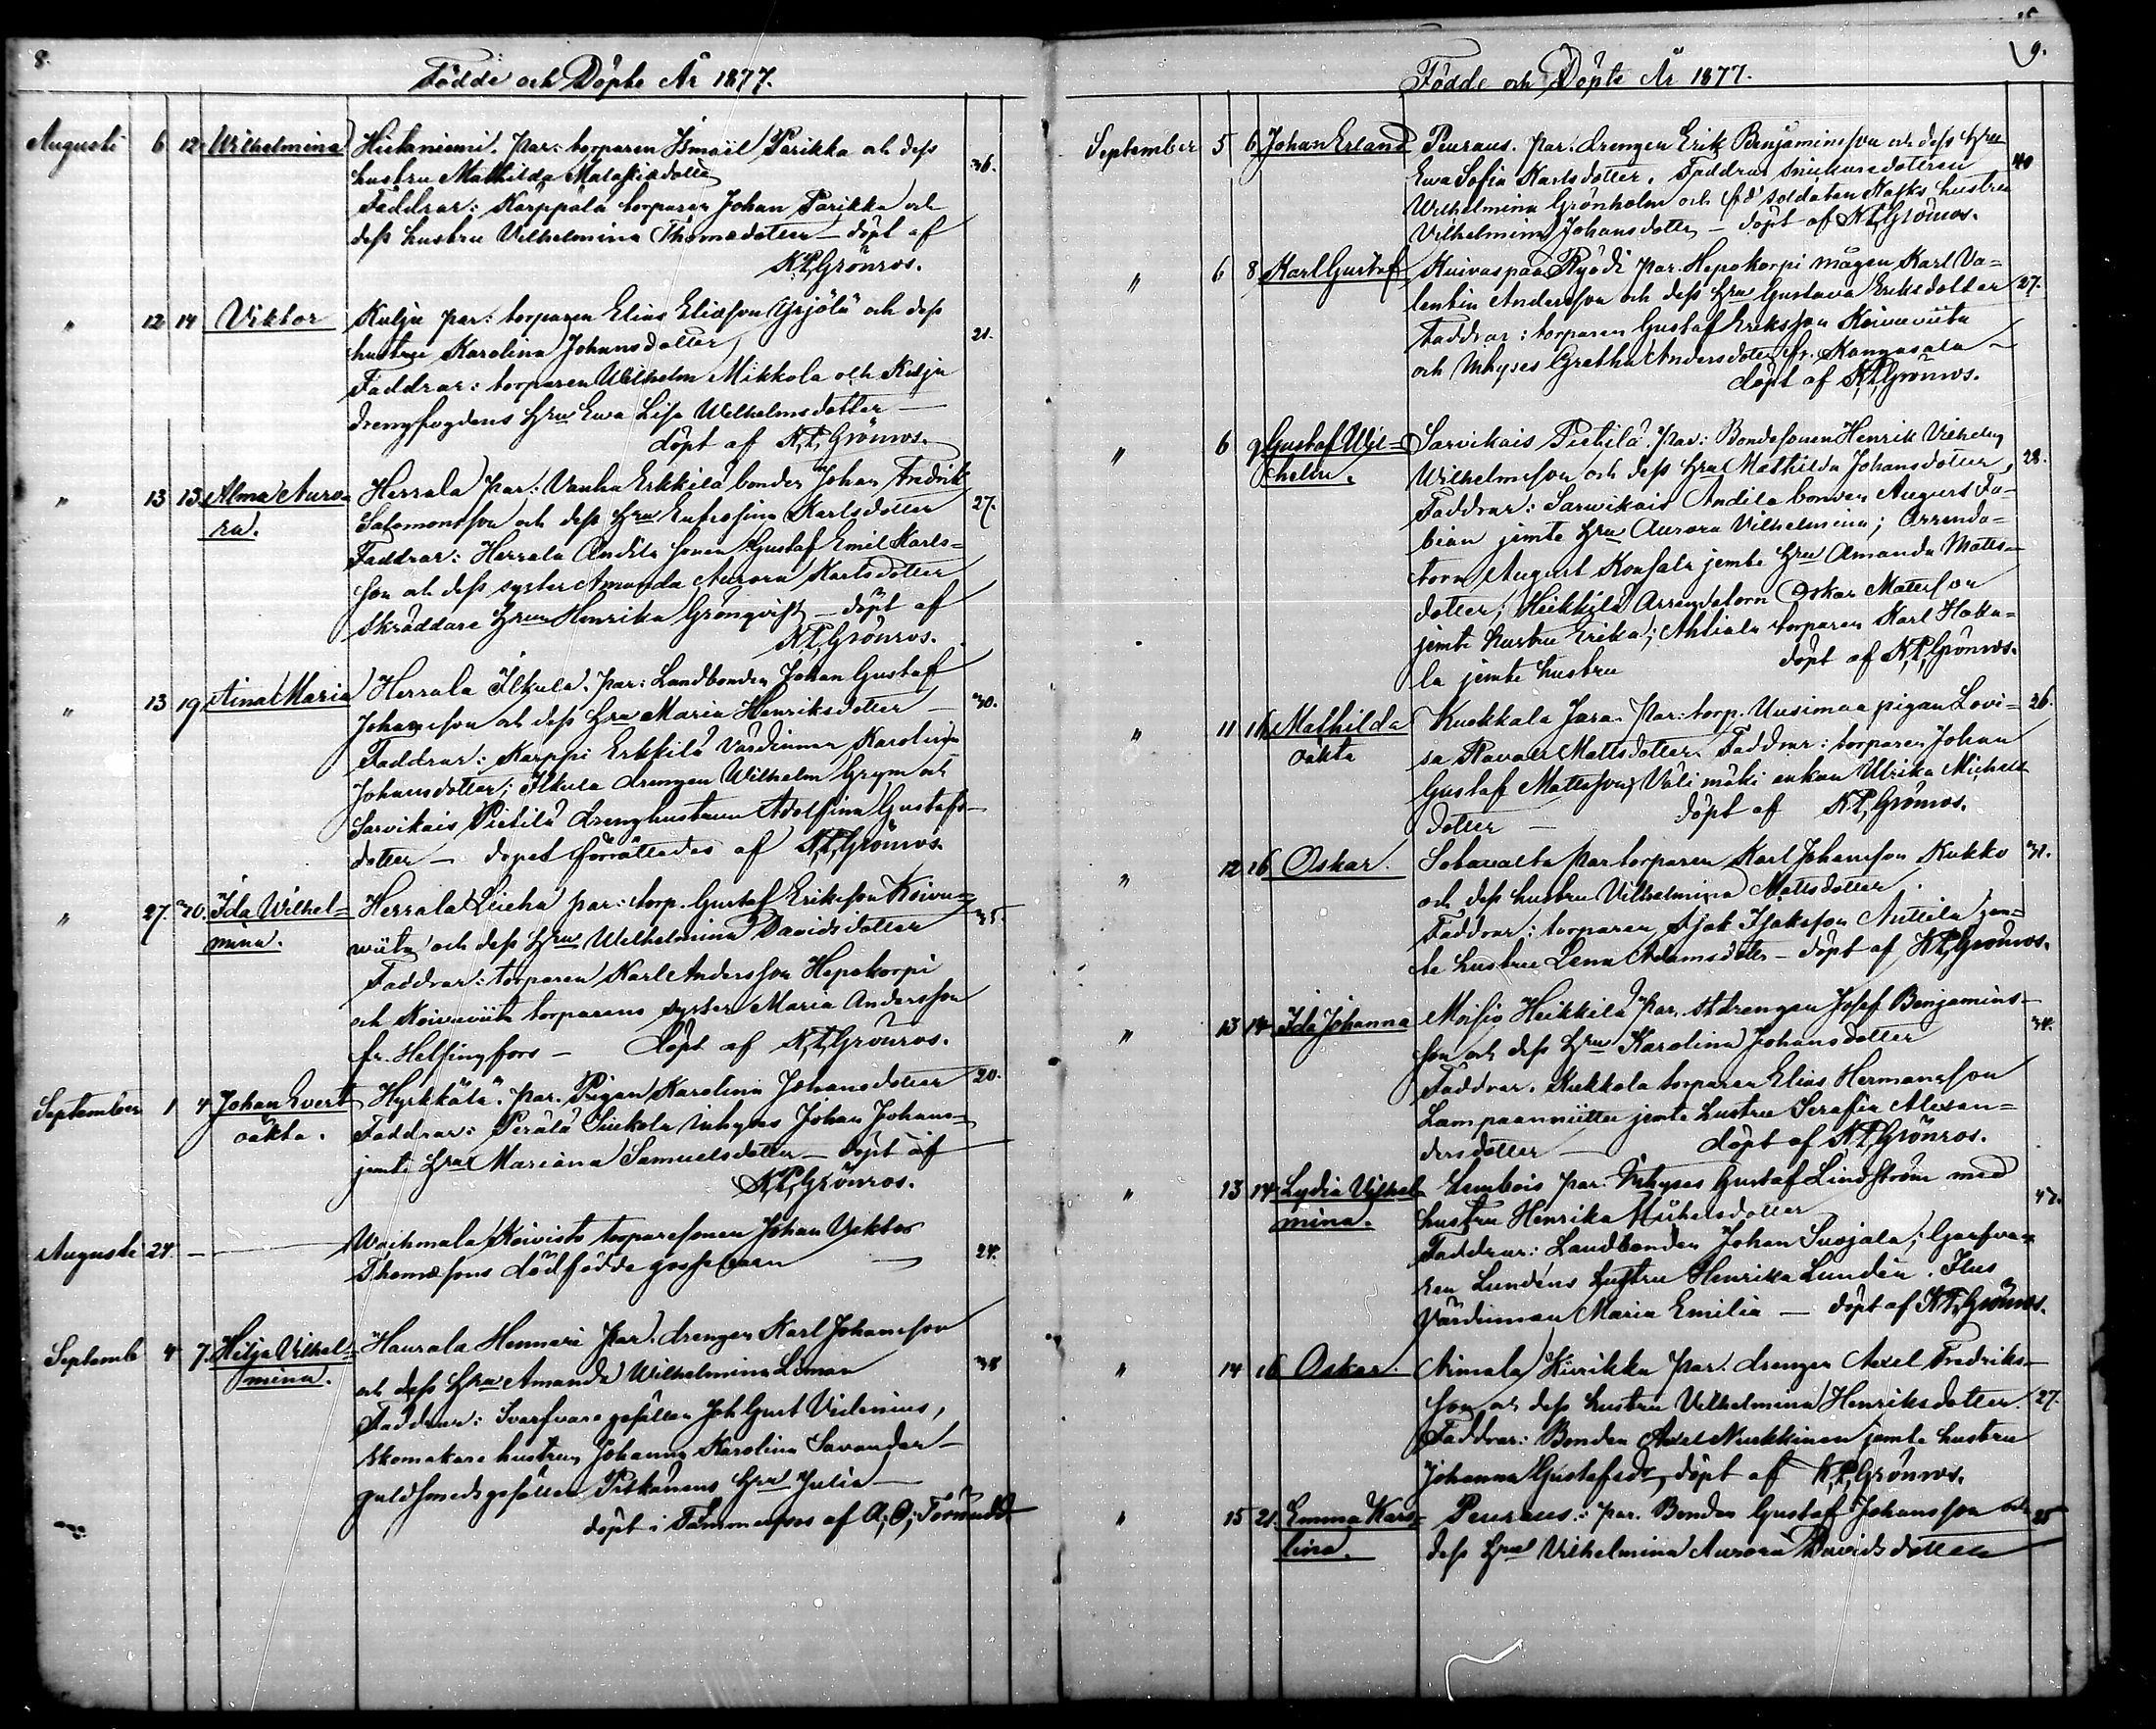 8.
Födde och Döpte År 1877.
Augusti 6 12 Wilhelmina Hietaniemi. par: torparen Ismaïl Parikka och dess 36.
hustru Mathilda Malakiædotter
Faddrar: Karppala torparen Johan Parikka och
dess hustru Vilhelmina Thomædotter — döpt af
K.P. Grönros.
" 12 14 Viktor Kulju par: torparen Elias Eliæson Yrjölä och dess 21.
hustru Karolina Johansdotter
Faddrar: torparen Wilhelm Mikkola och Kulju
drengfogdens Hru Ewa Lisa Wilhelmsdotter —
döpt af K.P. Grönros.
" 13 13 Alma Auro- Herrala par: Vanha Erkkilä bonden Johan Fredrik 27.
ra. Salomonsson och dess Hru Eufrosina Karlsdotter
Faddrar: Herrala Andila sonen Gustaf Emil Karls=
son och dess syster Amanda Aurora Karlsdotter
Skräddare Hrun Henrika Grönqvist — döpt af
K.P. Grönros.
" 13 19 Aina Maria Herrala Ilkula. par: Landbonden Johan Gustaf
Johansson och dess Hru Maria Henriksdotter — 30.
Faddrar: Karppi Erkkilä värdinnan Karolina
Johansdotter; Ilkula drengen Wilhelm Grym och
Sarvikais Pietilä drenghustrun Adolfina Gustafs-
dotter — dopet förrättades af K.P. Grönros.
" 27. 30. Ida Wilhel= Herrala Lieha par: torp. Gustaf Eriksson Koivu=
mina. wiita och dess Hru Wilhelmina Davidsdotter 35.
Faddrar: torparen Karl Andersson Hepokorpi
och Koivuviita torparens syster Maria Andersson
fr. Helsingfors — döpt af K.P. Grönros.
September 1 4 Johan Evert Hyrkkälä. par. Pigan Karolina Johansdotter 20.
oäkta. Faddrar: Perälä Sinkola inhyses Johan Johans=
jemte Hru Mariana Samuelsdotter — döpt af
K.P. Grönros.
Augusti 24. — Waihmala Koivisto torparesonen Johan Viktor
Thomæsons dödfödde gossebarn — 24.
Septemb 4 7. Hilja Vilhel= Haurala Hennari par. drengen Karl Johansson
mina. och dess Hru Amanda Wilhelmina Loman 38
Faddrar: Svarfvaregesällen Joh Gust Videnius,
Skomakare hustrun Johanna Karolina Savander —
guldsmedsgesällen Pitkänens Hru Julia —
döpt i Tammerfors af A. O. Törnudd
9.
Födde och Döpte År 1877.
September 5 6 Johan Erland Peuraus. par. drengen Erik Benjaminsson och dess Hru
Ewa Sofia Karlsdotter. Faddrar: Snickaredottren 40
Wilhelmina Grönholm och f.d. soldaten Kasks hustru
Vilhelmina Johansdotter — döpt af K.P. Grönros.
" 6 8 Karl Gustaf Kuivaspää Ryödi par. Hepokorpi mågen Karl Va=
lentin Andersson och dess Hru Gustava Eriksdotter 27.
Faddrar: torparen Gustaf Eriksson Koivuviita
och Inhyses Gretha Andersdotter fr. Kangasala —
döpt af K.P. Grönros.
" 6 9 Gustaf Wil= Sarvikais Pietilä. par: Bondesonen Henrik Vilhelm
helm. Wilhelmsson och dess Hru Mathilda Johansdotter, 28.
Faddrar: Sarwikais Andila bonden August Fa=
bian jemte Hru Aurora Vilhelmina; Arrenda=
torn August Konsala jemte Hru Amanda Matts=
dotter; Heikkilä Arrendatorn Oskar Mattsson
jemte hustru Erika; Ahtiala torparen Karl Haka=
la jemte hustru döpt af K.P. Grönros.
" 11 16 Mathilda Kuokkala Jara. Par: torp. Uusimaa pigan Lovi= 26.
oäkta sa Mattsdotter. Faddrar: torparen Johan
Gustaf Mattsson, Välimäki enkan Ulrika Michels
dotter — döpt af K.P. Grönros.
" 12 16 Oskar. Sotavalta par torparen Karl Johansson Kukko 31.
och dess hustru Vilhelmina Mattsdotter.
Faddrar: torparen Isak Isaksson Anttila jem=
te hustru Lena Adamsdotter — döpt af K.P. Grönros.
" 13 14 Ida Johanna Moisio Heikkilä par. drengen Josef Benjamins-
son och dess Hru Karolina Johansdotter 34.
Faddrar. Kukkola torparen Elias Hermansson
Lampaanniittu jemte hustru Serafia Alexan=
dersdotter — döpt af K.P. Grönros.
" 13 14 Lydia Vilhel- Lembois par. Inhyses Gustaf Lindström med
mina. hustru Henrika Michelsdotter 42.
Faddrar: Landbonden Johan Suojala; Garfva=
ren Lundéns hustru Henrika Lundén. Ilus
Värdinnan Maria Emilia — döpt af K.P. Grönros.
" 14 16 Oskar. Aimala Kiirikka par. drengen Axel Fredriks-
son och dess hustru Vilhelmina Henriksdotter. 27.
Faddrar: Bonden Axel Nurkkinen jemte hustru
Johanna Gustafsdr, döpt af K.P. Grönros.
" 15 21. Emma Karo= Peuraus.: par. Bonden Gustaf Johansson och 25
lina. dess Hru Vilhelmina Aurora Davidsdotter